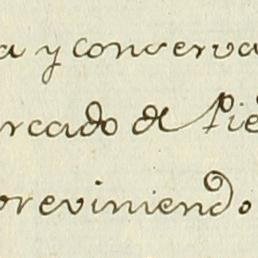 a y conserva
rcado de Pie
oreviniendo